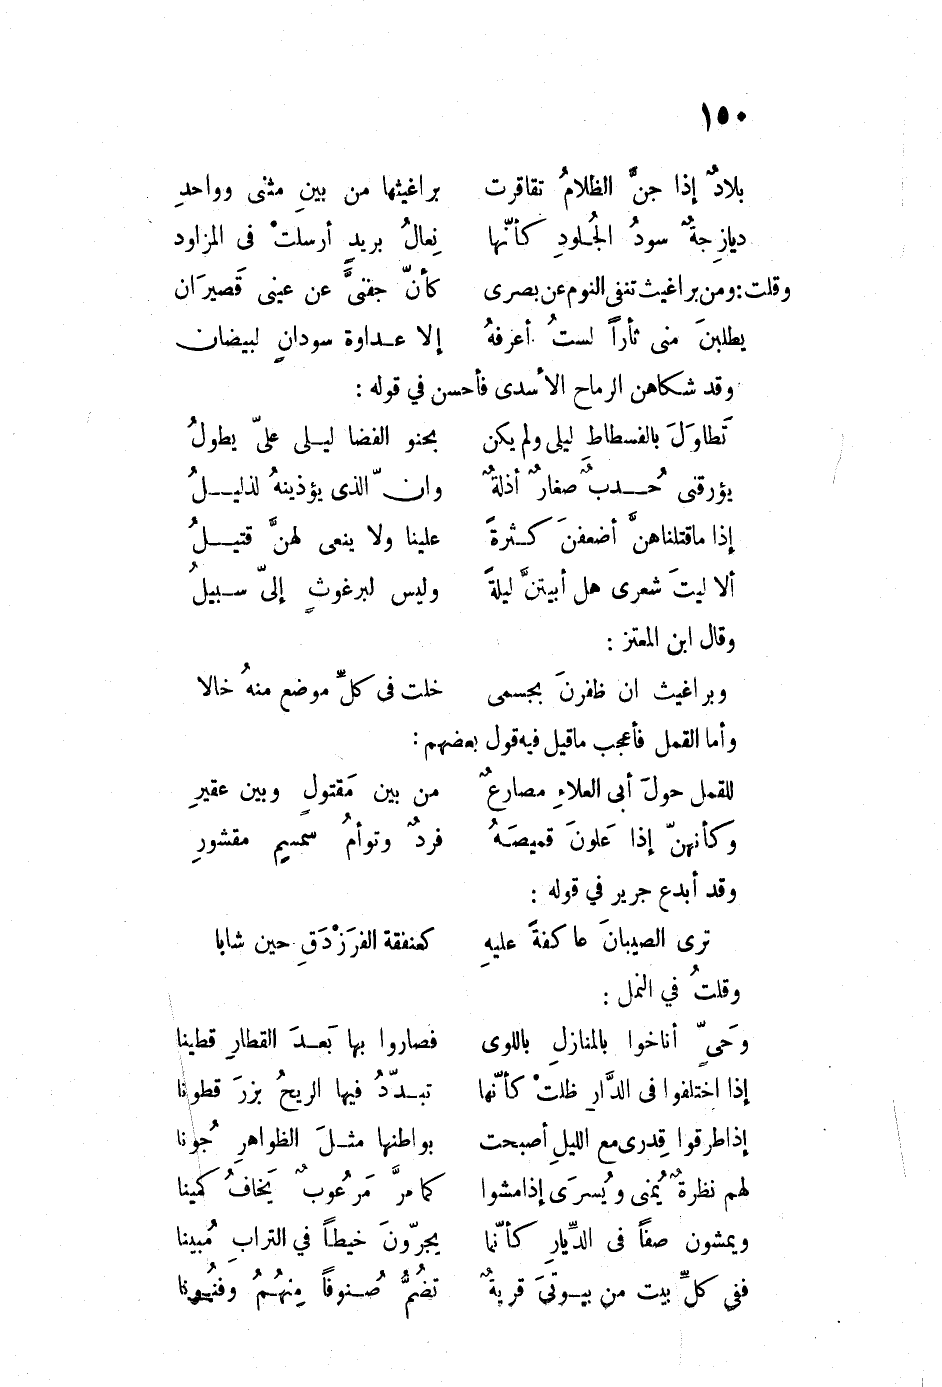 ١٥٠
بلادٌ إذا جنَّ الظلامُ تقافرت براغيثها من بينِ مثنى وواحدِ
ديازِجةٌ سودُ الجُلودِ كأنّها نِعالُ بريدٍ أرسلتْ فى المزاود
وقلت: ومن براغيث تنفى النوم عن بصرى كأنّ جفنىَّ عن عينى قَصيرَان
يطلبنَ منى ثأراً لستُ أعرفهُ إلا عداوة سودانٍ لبيضان
وقد شكاهن الرماح الأسدى فأحسن في قوله :
تَطاوَلَ بالفسطاطِ ليلى ولم يكن بحنو الفضا ليلى علىّ يطولُ
يؤرقنى حُدبٌ صغارٌ أذلةٌ وانّ الذى يؤذينهُ لذليلُ
إذا ماقتلناهنَّ أضعفنَ كثرةً علينا ولا ينعى لهنَّ قتيلُ
ألا ليتَ شعرى هل أبيتنَّ ليلةً وليس لبرغوثٍ إلىّ سبيلُ
وقال ابن المعتز :
وبراغيث ان ظفرنَ بجسمى خلت فى كلِّ موضع منهُ خالا
وأما القمل فأعجب ماقيل فيه قول بعضهم :
للقمل حولَ أبى العلاءِ مصارعٌ من بين مَقتولٍ وبين عقيرِ
وكأنهنّ إذا عَلونَ قميصَهُ فردٌ وتوأمُ سمسمٍ مقشورِ
وقد أبدع جرير في قوله :
ترى الصيبانَ عاكفةً عليهِ كعنفقة الفرَزْدَقِ حين شابا
وقلتُ في النمل :
وحَىٍّ أناخوا بالمنازلِ باللوى فصاروا بها بَعدَ القطارِ قطينا
إذا اختلفوا فى الدَّارِ ظلتْ كأنّها تبدّدُ فيها الريحُ بزرَ قطونا
إذا طرقوا قِدرى مع الليلِ أصبحت بواطنها مثلَ الظواهرِ جُونا
لهم نظرةٌ يُمنى ويُسرَى إذا مشوا كما مرَّ مَرعُوبٌ يَخافُ كمينا
ويمشون صفاً فى الدِّيارِ كأنّما يجرّونَ خيطاً في الترابِ مُبينا
ففى كلِّ بيت من بيوتىَ قريةٌ تضُمُّ صُنوفاً مِنهُمُ وفنُونا